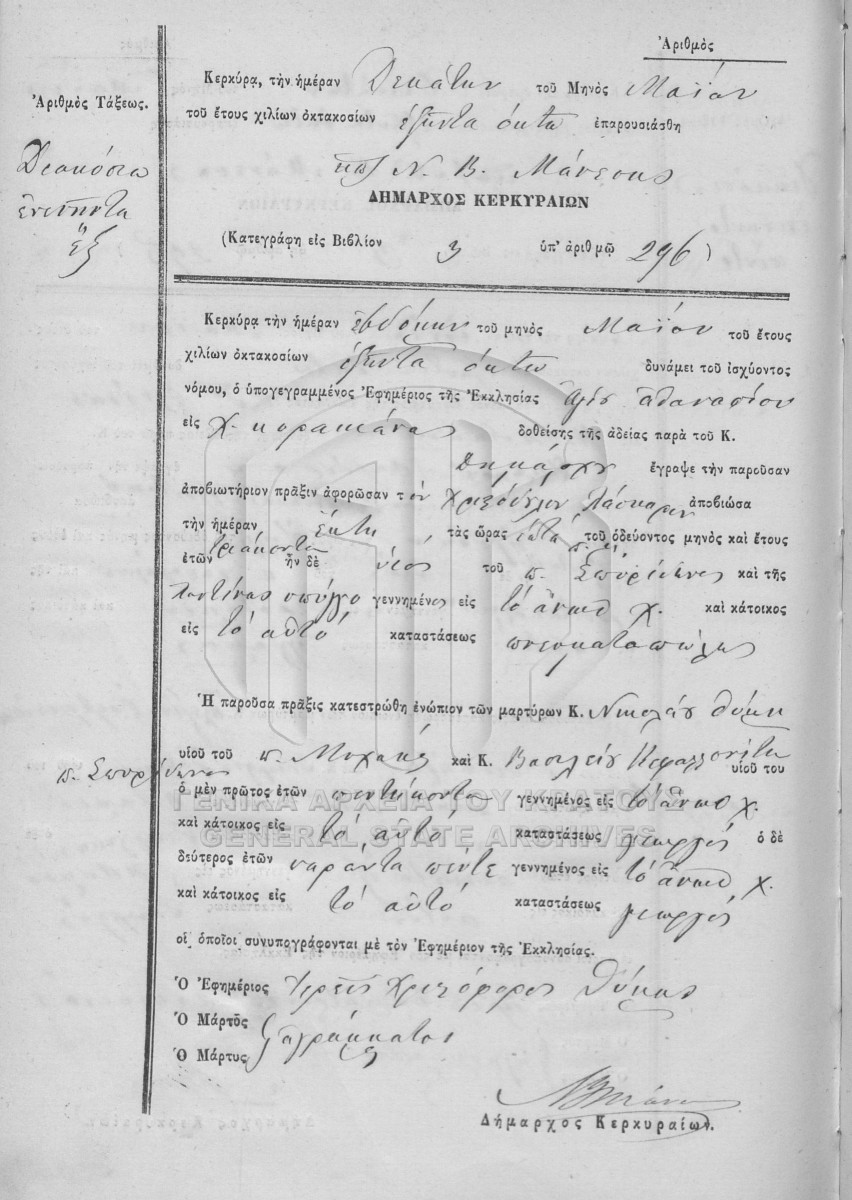 Ἀριθμὸς
Ἀριθμὸς Τάξεως.
Διακόσια
ἐνενῆντα
ἓξ
Κερκύρα, τὴν ἡμέραν Δεκάτην τοῦ Μηνὸς Μαΐου
τοῦ ἔτους χιλίων ὀκτακοσίων ἑξῆντα ὀκτὼ ἐπαρουσιάσθη
Ν. Β. Μάνεσης
ΔΗΜΑΡΧΟΣ ΚΕΡΚΥΡΑΙΩΝ
(Κατεγράφη εἰς Βιβλίον 3 ὑπ' ἀριθμῷ 296)
Κερκύρα τὴν ἡμέραν ἑβδόμην τοῦ μηνὸς Μαΐου τοῦ ἔτους
χιλίων ὀκτακοσίων ἑξῆντα ὀκτὼ δυνάμει τοῦ ἰσχύοντος
νόμου, ὁ ὑπογεγραμμένος Ἐφημέριος τῆς Ἐκκλησίας Ἁγίου Ἀθανασίου
εἰς χ. κορακιάνας δοθείσης τῆς ἀδείας παρὰ τοῦ Κ.
Δημάρχου ἔγραψε τὴν παροῦσαν
ἀποβιωτήριον πρᾶξιν ἀφορῶσαν τὸν Λάσκαριν ἀποβιώσα
τὴν ἡμέραν ἕκτη τὰς ὥρας τοῦ ὁδεύοντος μηνὸς καὶ ἔτους
ἐτῶν τριάκοντα ἦν δὲ υἱὸς τοῦ π. Σπυρίδωνος καὶ τῆς
γεννημένος εἰς τὸ ἄνωθ χ. καὶ κάτοικος
εἰς τὸ αὐτό καταστάσεως πνευματοπώλης
Ἡ παροῦσα πρᾶξις κατεστρώθη ἐνώπιον τῶν μαρτύρων Κ. Νικολάου Θύμη
υἱοῦ τοῦ π. Μιχαήλ καὶ Κ. Βασιλείου Κεφαλλονίτη υἱοῦ του
π. Σπυρίδωνος
ὁ μὲν πρῶτος ἐτῶν πεντήκοντα γεννημένος εἰς τὸ ἄνωθ χ.
καὶ κάτοικος εἰς τὸ αὐτό καταστάσεως γεωργός ὁ δὲ
δεύτερος ἐτῶν σαράντα πέντε γεννημένος εἰς τὸ ἄνωθ χ.
καὶ κάτοικος εἰς τὸ αὐτό καταστάσεως γεωργός
οἱ ὁποῖοι συνυπογράφονται μὲ τὸν Ἐφημέριον τῆς Ἐκκλησίας.
Ὁ Ἐφημέριος Ἱερεὺς Χριστόφορος Θύμης
Ὁ Μάρτυς ἀγράμματοι
Ὁ Μάρτυς
Δήμαρχος Κερκυραίων.
ΓΕΝΙΚΑ ΑΡΧΕΙΑ ΤΟΥ ΚΡΑΤΟΥΣ
GENERAL STATE ARCHIVES